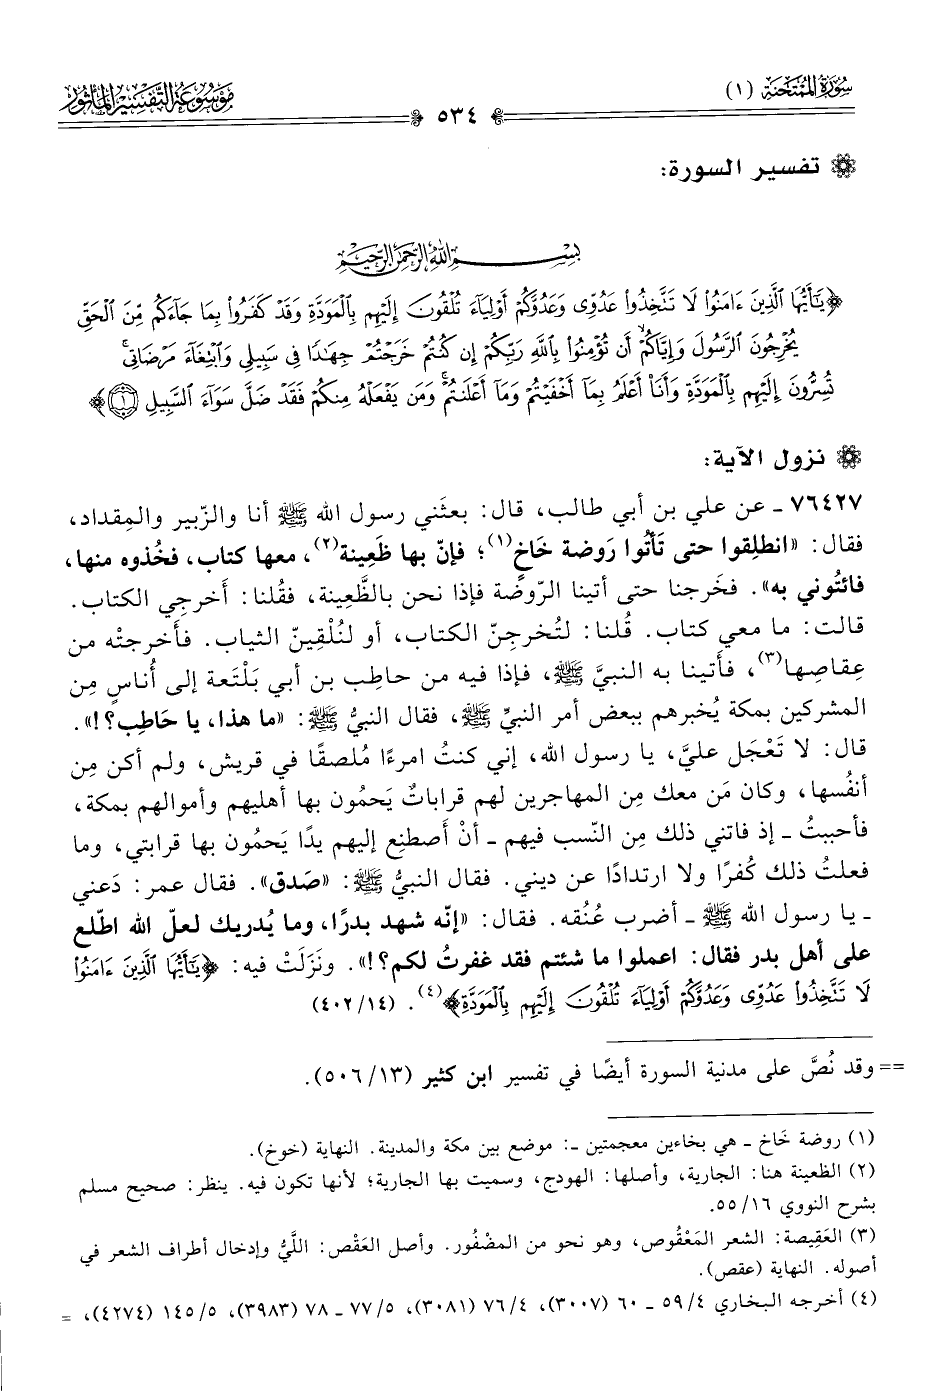 سورة الممتحنة (١)
موسوعة التفسير المأثور
٥٣٤
تفسير السورة:
بسم الله الرحمن الرحيم
﴿يَٰٓأَيُّهَا ٱلَّذِينَ ءَامَنُوا۟ لَا تَتَّخِذُوا۟ عَدُوِّى وَعَدُوَّكُمْ أَوْلِيَآءَ تُلْقُونَ إِلَيْهِم بِٱلْمَوَدَّةِ وَقَدْ كَفَرُوا۟ بِمَا جَآءَكُم مِّنَ ٱلْحَقِّ
يُخْرِجُونَ ٱلرَّسُولَ وَإِيَّاكُمْ ۙ أَن تُؤْمِنُوا۟ بِٱللَّهِ رَبِّكُمْ إِن كُنتُمْ خَرَجْتُمْ جِهَٰدًا فِى سَبِيلِى وَٱبْتِغَآءَ مَرْضَاتِى ۚ
تُسِرُّونَ إِلَيْهِم بِٱلْمَوَدَّةِ وَأَنَا۠ أَعْلَمُ بِمَآ أَخْفَيْتُمْ وَمَآ أَعْلَنتُمْ ۚ وَمَن يَفْعَلْهُ مِنكُمْ فَقَدْ ضَلَّ سَوَآءَ ٱلسَّبِيلِ ۝١﴾
نزول الآية:
٧٦٤٢٧ ـ عن علي بن أبي طالب، قال: بعثَني رسول الله ﷺ أنا والزّبير والمِقداد،
فقال: «انطلِقوا حتى تَأتُوا رَوضة خَاخٍ(١)؛ فإنّ بها ظَعِينة(٢)، معها كتاب، فخُذوه منها،
فائتُوني به». فخَرجنا حتى أتينا الرّوضة فإذا نحن بالظَّعِينة، فقُلنا: أَخرجِي الكتاب.
قالت: ما معي كتاب. قُلنا: لتُخرجِنّ الكتاب، أو لنُلْقِينّ الثياب. فأخرجتْه من
عِقاصِها(٣)، فأتينا به النبيَّ ﷺ، فإذا فيه من حاطِب بن أبي بَلْتَعة إلى أُناسٍ مِن
المشركين بمكة يُخبرهم ببعض أمر النبيِّ ﷺ، فقال النبيُّ ﷺ: «ما هذا، يا حَاطِب؟!».
قال: لا تَعْجَل عليَّ، يا رسول الله، إني كنتُ امرءًا مُلصقًا في قريش، ولم أكن مِن
أنفُسها، وكان مَن معك مِن المهاجرين لهم قراباتٌ يَحمُون بها أهليهم وأموالهم بمكة،
فأحببتُ ـ إذ فاتني ذلك مِن النّسب فيهم ـ أنْ أَصطنِع إليهم يدًا يَحمُون بها قرابتي، وما
فعلتُ ذلك كُفرًا ولا ارتدادًا عن ديني. فقال النبيُّ ﷺ: «صَدق». فقال عمر: دَعني
ـ يا رسول الله ﷺ ـ أضرب عُنُقه. فقال: «إنّه شهد بدرًا، وما يُدريك لعلّ الله اطّلع
على أهل بدر فقال: اعملوا ما شئتم فقد غفرتُ لكم؟!». ونَزَلَتْ فيه: ﴿يَٰٓأَيُّهَا ٱلَّذِينَ ءَامَنُوا۟
لَا تَتَّخِذُوا۟ عَدُوِّى وَعَدُوَّكُمْ أَوْلِيَآءَ تُلْقُونَ إِلَيْهِم بِٱلْمَوَدَّةِ﴾(٤). (١٤/٤٠٢)
== وقد نُصَّ على مدنية السورة أيضًا في تفسير ابن كثير (١٣/٥٠٦).
(١) روضة خَاخ ـ هي بخاءين معجمتين ـ: موضع بين مكة والمدينة. النهاية (خوخ).
(٢) الظعينة هنا: الجارية، وأصلها: الهودج، وسميت بها الجارية؛ لأنها تكون فيه. ينظر: صحيح مسلم
بشرح النووي ١٦/٥٥.
(٣) العَقِيصة: الشعر المَعْقُوص، وهو نحو من المضْفُور. وأصل العَقْص: اللَّيُّ وإدخال أطراف الشعر في
أصوله. النهاية (عقص).
(٤) أخرجه البخاري ٤/٥٩ ـ ٦٠ (٣٠٠٧)، ٤/٧٦ (٣٠٨١)، ٥/٧٧ ـ ٧٨ (٣٩٨٣)، ٥/١٤٥ (٤٢٧٤)، =